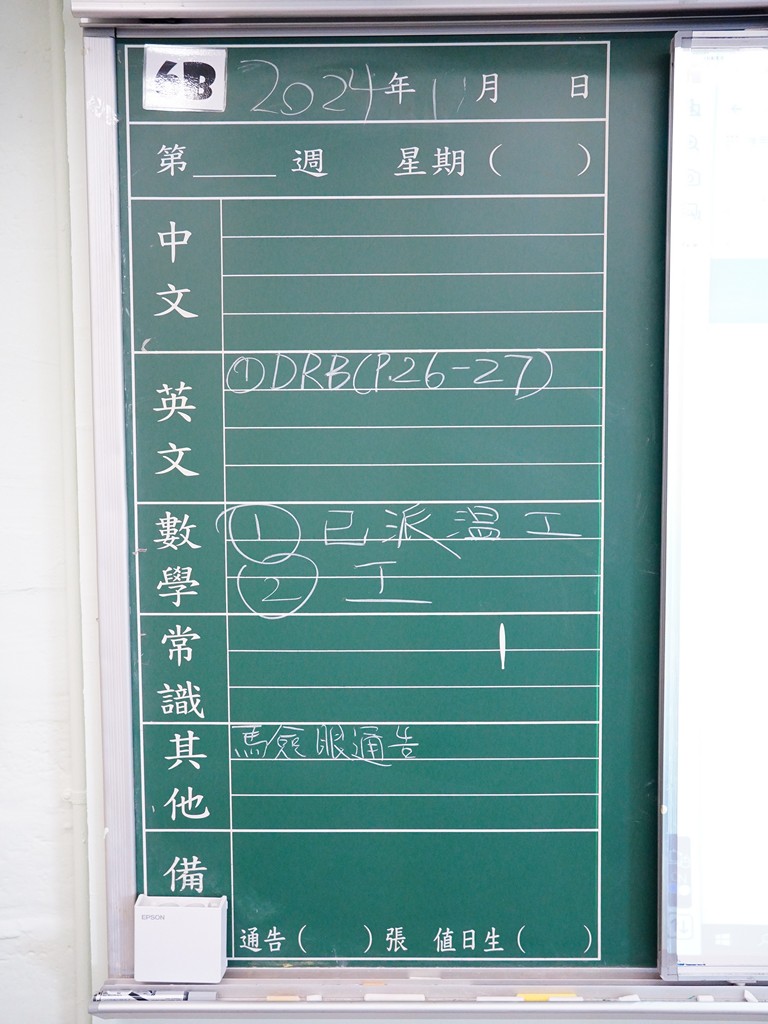 6B 2024年11月 日
第 週 星期( )
中文
英文
①DRB(P.26-27)
數學
① 已派溫工
② 工
常識
其他
馬喼眼通告
備
EPSON
通告( )張 值日生( )